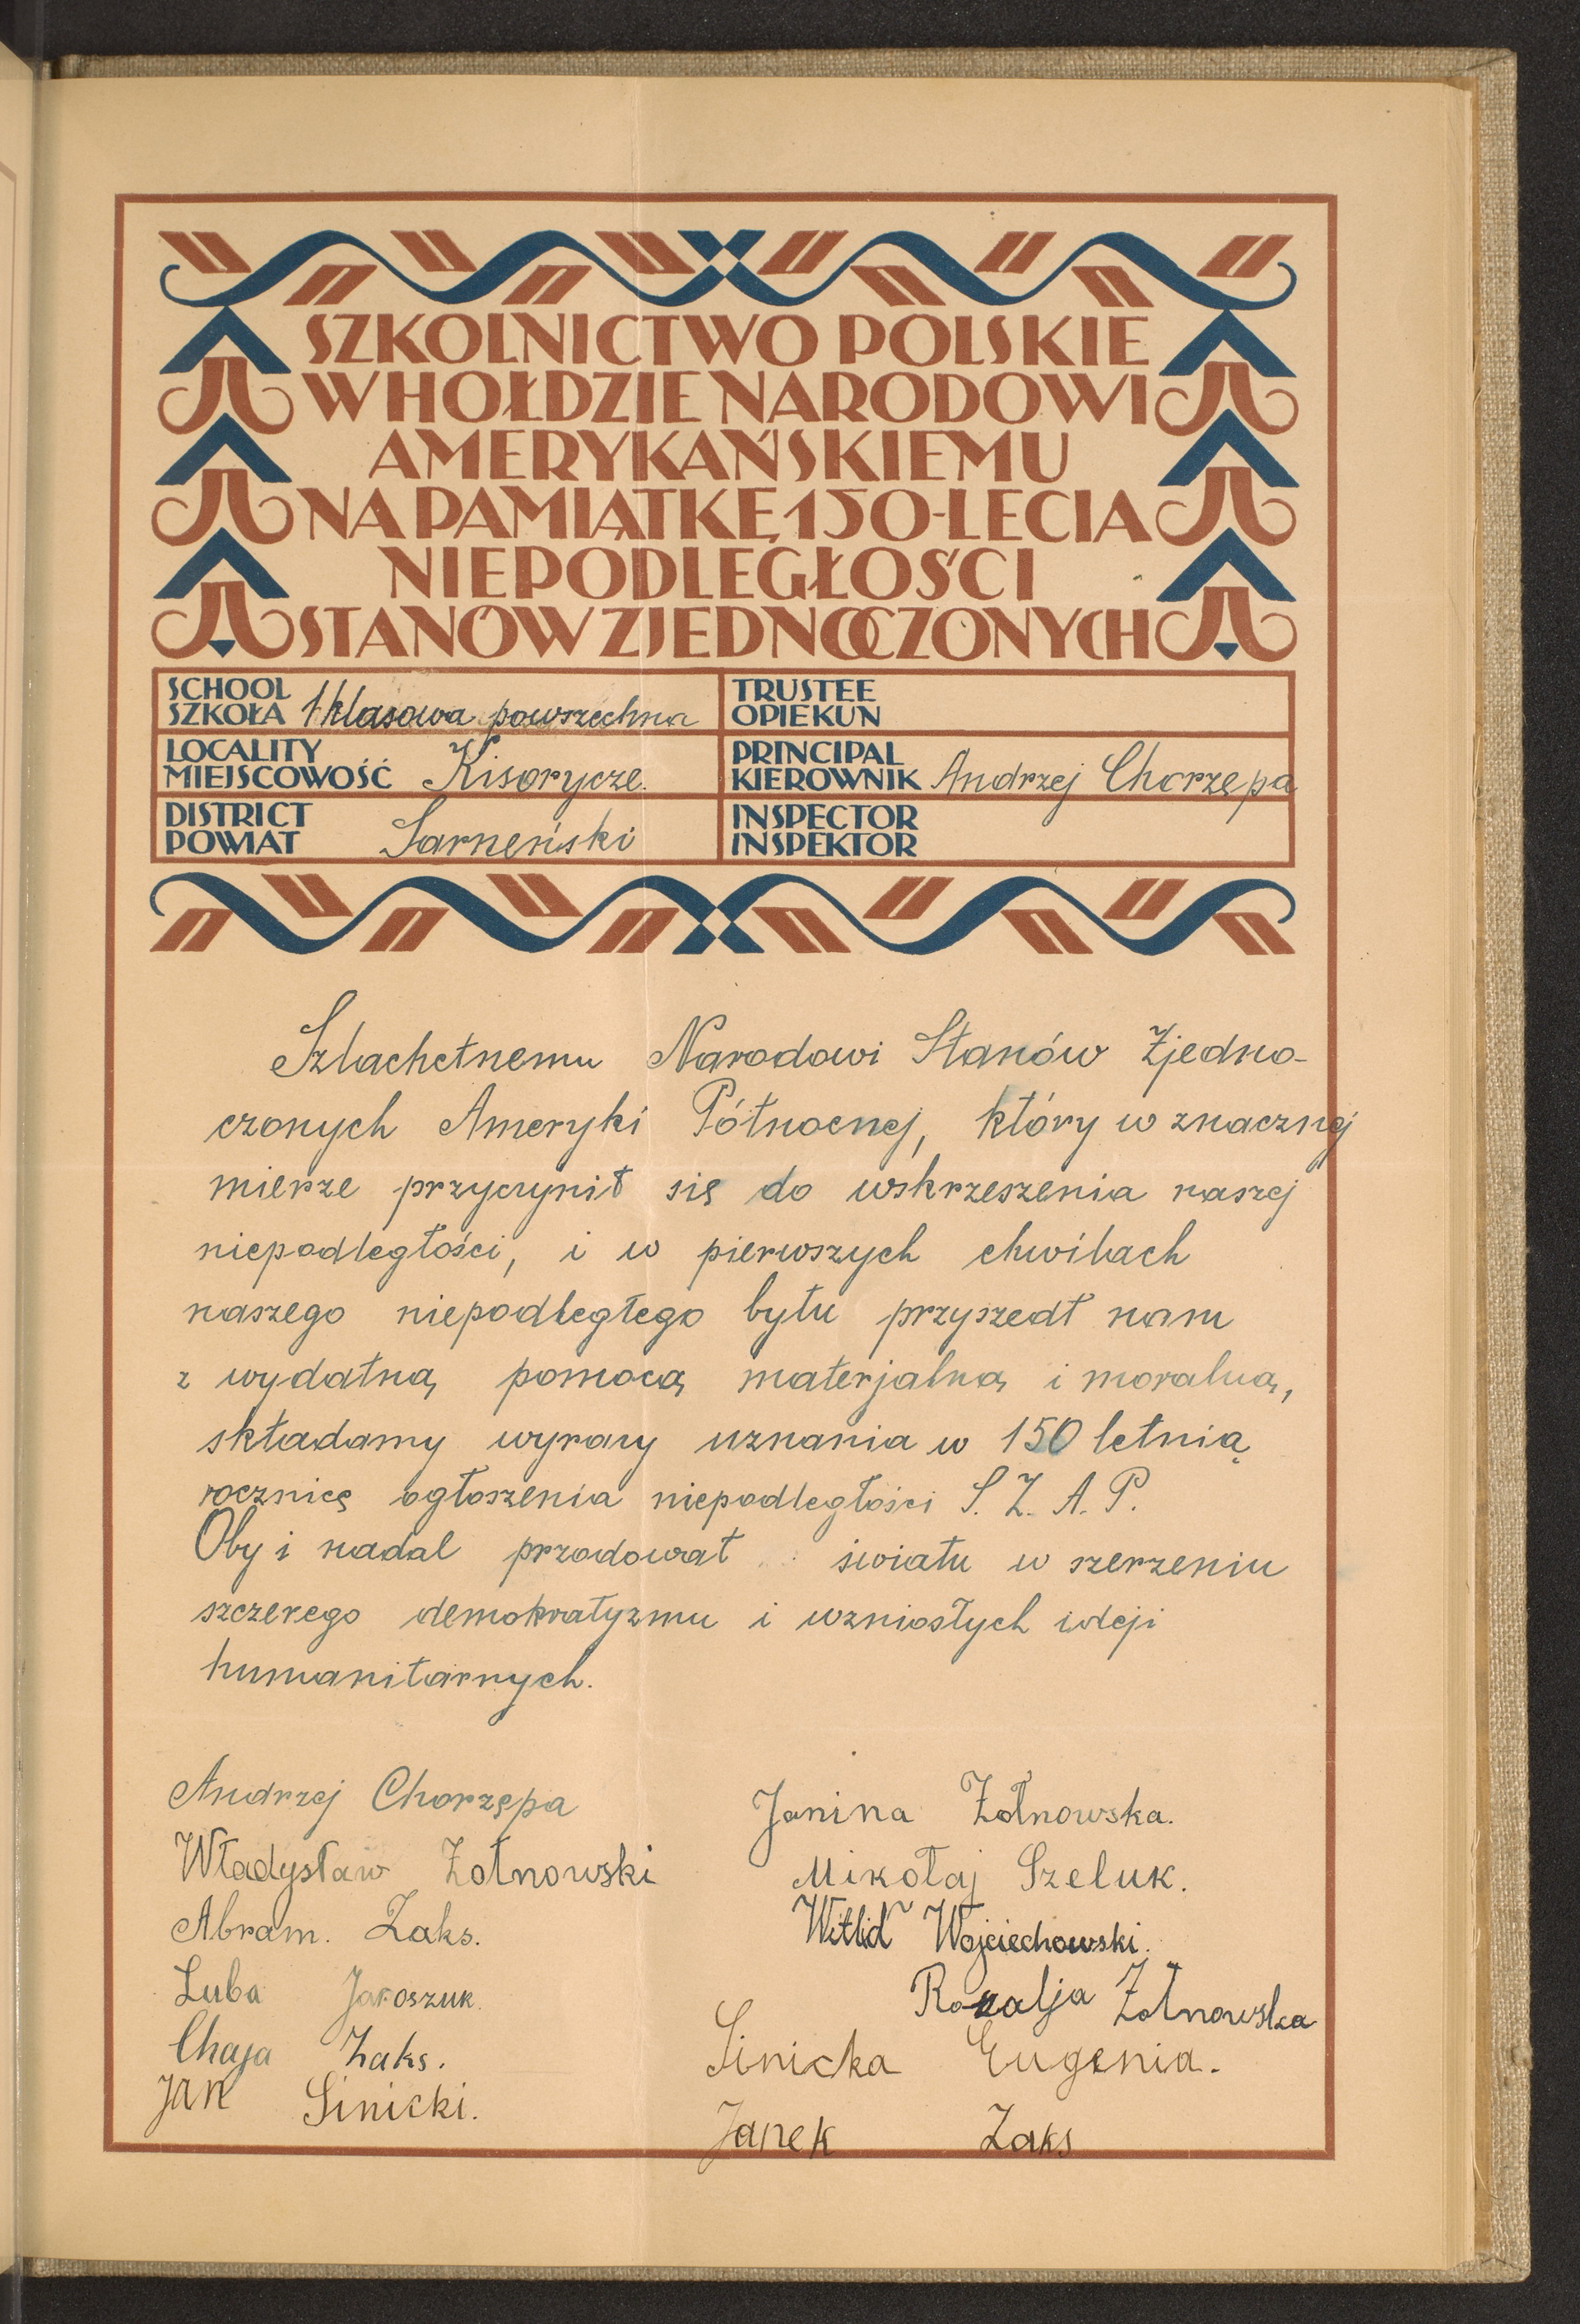 SZKOLNICTWO POLSKIE
W HOŁDZIE NARODOWI
AMERYKAŃSKIEMU
NA PAMIĄTKĘ 150-LECIA
NIEPODLEGŁOŚCI
STANÓW ZJEDNOCZONYCH
SCHOOL
SZKOŁA 1 klasowa powszechna
LOCALITY
MIEJSCOWOŚĆ Kisorycze.
DISTRICT
POWIAT Sarneński
TRUSTEE
OPIEKUN
PRINCIPAL
KIEROWNIK Andrzej Chorzępa
INSPECTOR
INSPEKTOR
Szlachetnemu Narodowi Stanów Zjedno-
czonych Ameryki Północnej, który w znacznej
mierze przyczynił się do wskrzeszenia naszej
niepodległości, i w pierwszych chwilach
naszego niepodległego bytu przyszedł nam
z wydatną pomocą materjalną i moralną,
składamy wyrazy uznania w 150 letnią
rocznicę ogłoszenia niepodległości S. Z. A. P.
Oby i nadal przodował światu w szerzeniu
szczerego demokratyzmu i wzniosłych ideji
humanitarnych.
Andrzej Chorzępa
Władysław Żołnowski
Abram. Zaks.
Luba Jaroszuk.
Chaja Zaks.
Jan Sinicki.
Janina Żołnowska.
Mikołaj Szeluk.
Witold Wojciechowski.
Rozalja Żołnowska
Sinicka Eugenia.
Janek Zaks